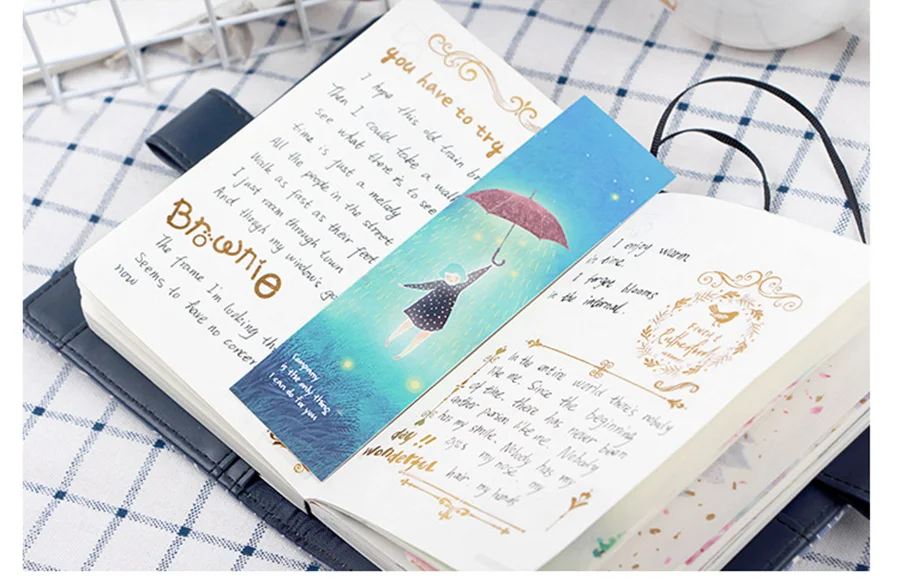 you have to try
I hope this old train br
Then I could take a walk
See what there is to see
time is just a melody
All the people in the street
Walk as fast as their feet
I just roam through town
And through my window's go
Brownie
The frame I'm looking th
Seems to have no concer
now
Company
is the only thing
I can do for you
I enjoy warm
in time.
I forged blooms
in the infernal.
In the entire world there's nobody
like me. Since the beginning
of time, there has never been
another person like me. Nobody
has my smile. Nobody has
my eyes my nose, my
hair my hands
day!!
wonderful